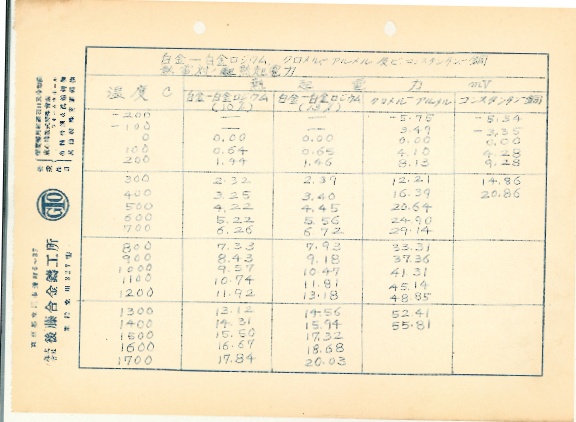 白金—白金ロジウム、クロメルーアルメル 及ビ コンスタンタンー銅
熱電対ノ熱起電力
温度 C 熱起電力 mV
白金—白金ロジウム (10%) 白金—白金ロジウム (13%) クロメルーアルメル コンスタンタンー銅
-200 — — -5.75 -5.34
-100 — — -3.49 -3.35
0 0.00 0.00 0.00 0.00
100 0.64 0.65 4.10 4.28
200 1.44 1.46 8.13 9.28
300 2.32 2.39 12.21 14.86
400 3.25 3.40 16.39 20.86
500 4.22 4.45 20.64
600 5.22 5.56 24.90
700 6.26 6.72 29.14
800 7.33 7.93 33.31
900 8.43 9.18 37.36
1000 9.57 10.47 41.31
1100 10.74 11.81 45.14
1200 11.92 13.18 48.85
1300 13.12 14.56 52.41
1400 14.31 15.94 55.81
1500 15.50 17.32
1600 16.67 18.68
1700 17.84 20.03
株式会社 後藤合金鋳工所